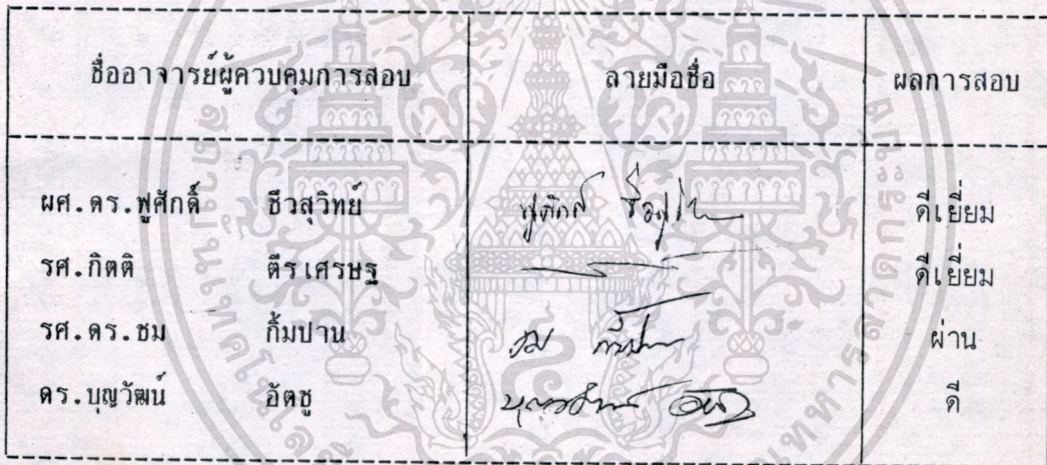 ชื่ออาจารย์ผู้ควบคุมการสอบ ลายมือชื่อ ผลการสอบ
ผศ.ดร.ฟูศักดิ์ ชีวสุวิทย์ ดีเยี่ยม
รศ.กิตติ ตีรเศรษฐ ดีเยี่ยม
รศ.ดร.ชม กิ้มปาน ผ่าน
ดร.บุญวัฒน์ อัตชู ดี